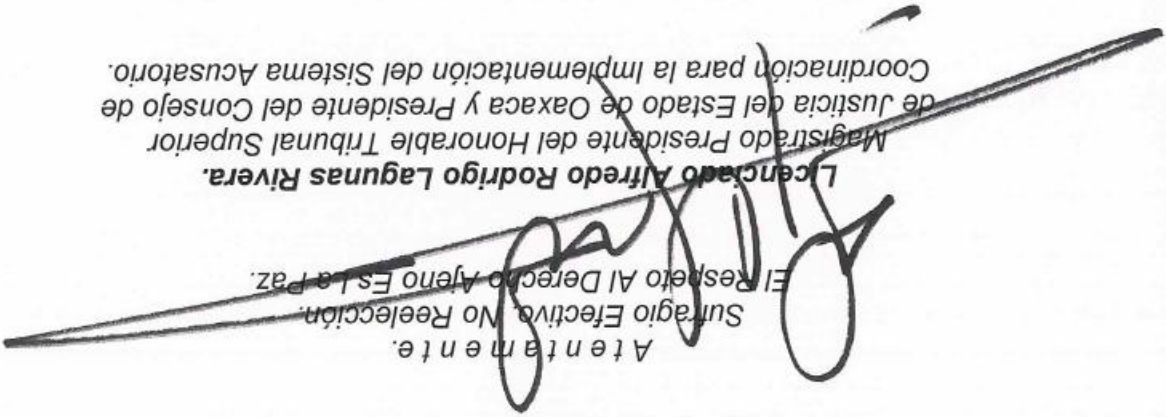 A t e n t a m e n t e.
Sufragio Efectivo. No Reelección.
El Respeto Al Derecho Ajeno Es La Paz.
Licenciado Alfredo Rodrigo Lagunas Rivera.
Magistrado Presidente del Honorable Tribunal Superior
de Justicia del Estado de Oaxaca y Presidente del Consejo de
Coordinación para la Implementación del Sistema Acusatorio.